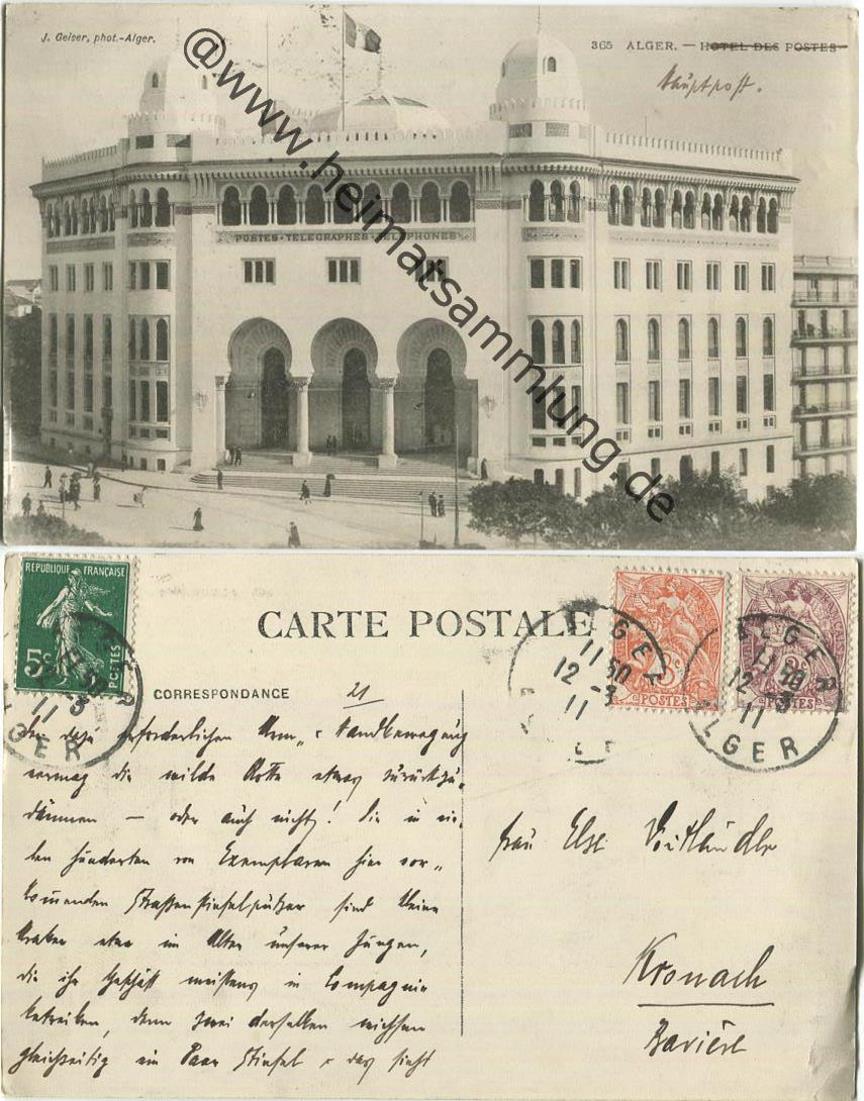 J. Geiser, phot.-Alger.
365 ALGER. — HOTEL DES POSTES
Hauptpost.
@www.heimatsammlung.de
POSTES-TELEGRAPHES-TELEPHONES
RÉPUBLIQUE FRANÇAISE
5c
POSTES
CARTE POSTALE
CORRESPONDANCE
21
ALGER
11 50
12 -3
11
POSTES
ALGER
12 -3
11
POSTES
ALGER
12 -3
11
dazu erforderlichen Arm- & Handbewegung
vermag die wilde Rotte etwas zurückzu-
dämmen — oder auch nicht! Die in vie-
len Hunderten von Exemplaren hier vor-
kommenden Strassenstiefelputzer sind kleine
Araber etwa im Alter unserer Jungen,
die ihr Geschäft meistens in Compagnie
betreiben, denn zwei derselben wichsen
gleichzeitig ein Paar Stiefel & das sieht
Frau Else Voitländer
Kronach
Bavière